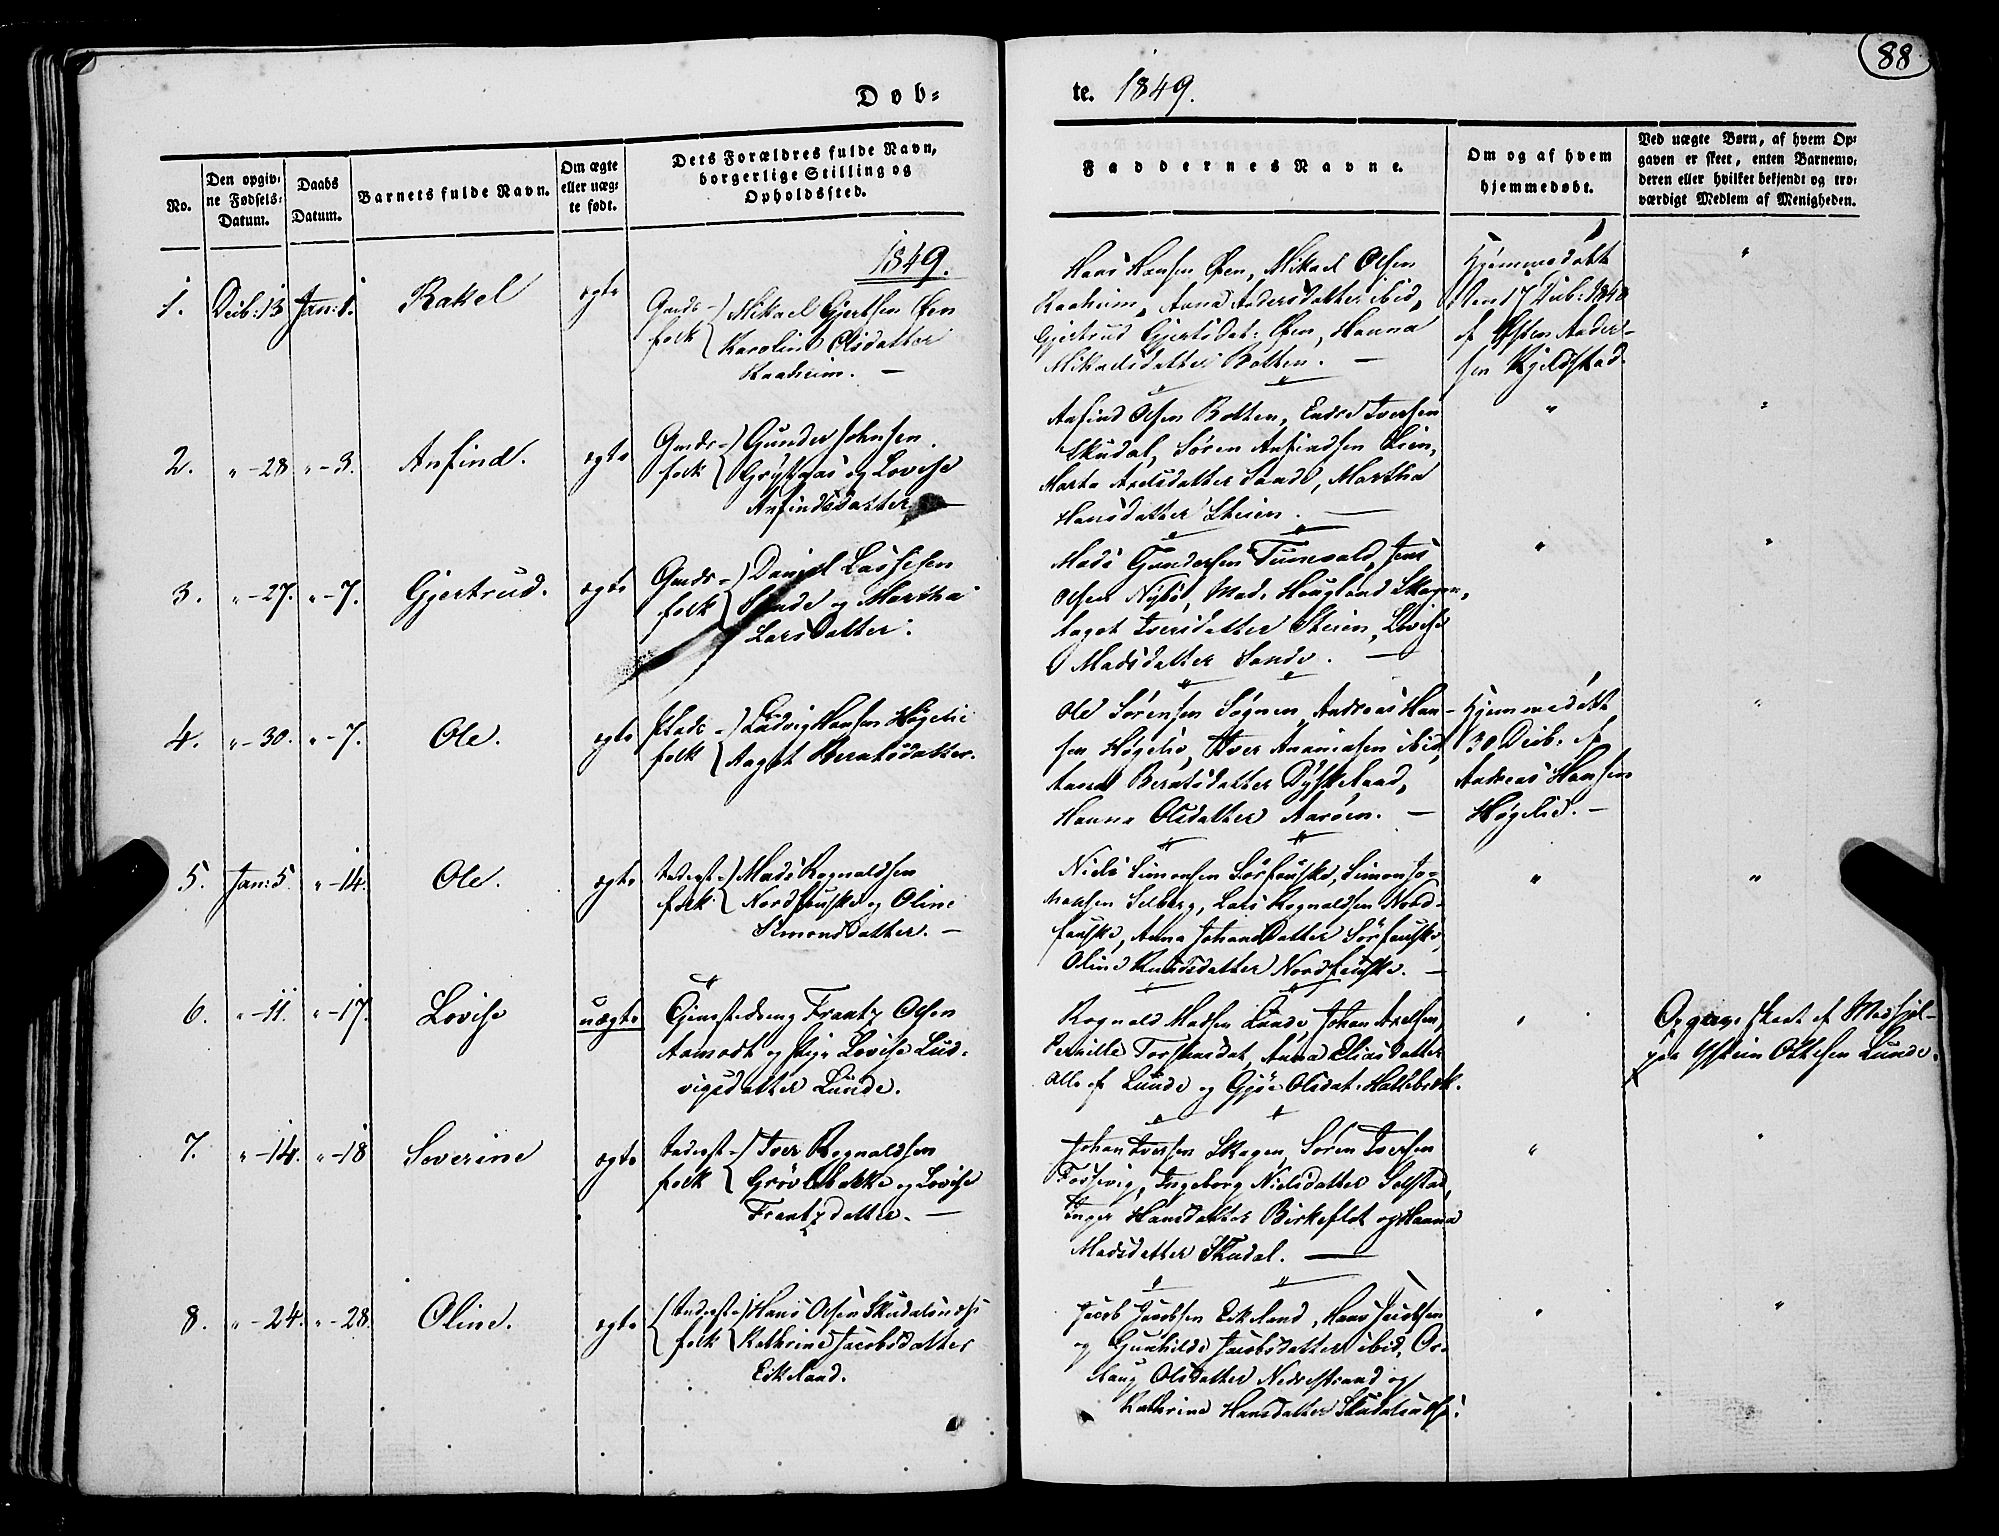 88
Døb=
te. 1849.
No.
Den opgiv=
ne Fødsels=
Datum.
Daabs
Datum.
Barnets fulde Navn.
Om ægte
eller uæg=
te født.
Dets Forældres fulde Navn,
borgerlige Stilling og
Opholdssted.
Faddernes Navne.
Om og af hvem
hjemmedøbt.
Ved uægte Børn, af hvem Op=
gaven er skeet, enten Barnemo=
deren eller hvilket bekjendt og tro=
værdigt Medlem af Menigheden.
1849.
1. Decb: 13 Jan: 1. Rakel ægte
Gmds-
folk
Mikael Gjertsen Øen
Karoline Olsdatter
Raaheim. —
Hans Hansen Øen, Mikael Olsen
Raaheim, Anna Andersdatter ibid,
Gjertrud Gjertsdat: Øen, Hanna
Mikaelsdatter Botten. —
Hjemmedøbt
den 17 Decb: 1848
af Østen Ander-
sen Kjeldstad.
"
2. "-28 "-3. Anfind. ægte
Gmds-
folk
Gunder Johnsen
og Lovise
Anfindsdatter —
Anfind Olsen Botten, Endre Iversen
Skudal, Søren Anfindsen Lien,
Marta Axelsdatter Sande, Martha
Hansdatter Steien. —
" "
3. "-27. "-7. Gjertrud. ægte
Gmds-
folk
Daniel Lassesen
Sande og Martha
Larsdatter.
Mads Gundersen Tunevald, Jens
Olsen Nybø, Mad. Hougland Skagen,
Aagot Iversdatter Steien, Lovise
Madsdatter Sande. —
" "
4. "-30. "-7. Ole. ægte
folk
Ludvig Hansen Høgelie
Aagot Berntsdatter.
Ole Sørensen Søgnen, Andreas Han-
sen Høgelie, Iver Ananiasen ibid,
Anna Berntsdatter Dyskeland,
Hanna Olsdatter Aarøen. —
Hjemmedøbt
30 Decb. af
Andreas Hansen
Høgelie. —
"
5. Jan: 5. "-14. Ole. ægte
Inderst-
folk
Mads Rognaldsen
Nordfouske og Oline
Simonsdatter. —
Niels Simonsen Sørfouske, Simon Jo-
hansen Selberg, Lars Rognaldsen Nord-
fouske, Anna Johansdatter Sørfouske,
Oline Knudsdatter Nordfouske. —
" "
6. "-11. "-17. Lovise uægte
Tjenestedreng Frantz Olsen
Aamodt og Pige Lovise Lud-
vigsdatter Lunde.
Rognald Madsen Lunde, Johan Axelsen,
Pernille Torstensdat, Anna Eliasdatter
Alle af Lunde og Gjøe Olsdat: Hattebrek.
"
Opgave skeet af Medhjel-
per Ystein Ottesen Lunde.
7. "-14. "-18 Severine ægte
Inderst-
folk
Iver Rognaldsen
Grøvlebakke og Lovise
Frantzdatter. —
Johan Iversen Skagen, Søren Iversen
Fossevig, Ingeborg Nielsdatter Solstad,
Inger Hansdatter Birkeflot og Hanna
Madsdatter Skudal. —
" "
8. "-24. "-28. Oline. ægte
Inderst-
folk
Hans Olsen
Kathrine Jacobsdatter
Eikeland.
Jacob Jacobsen Eikeland, Hans Jacobsen
og Gunhilde Jacobsdatter ibid, Os-
laug Olsdatter Nedrestrand og
Kathrine Hansdatter
" "